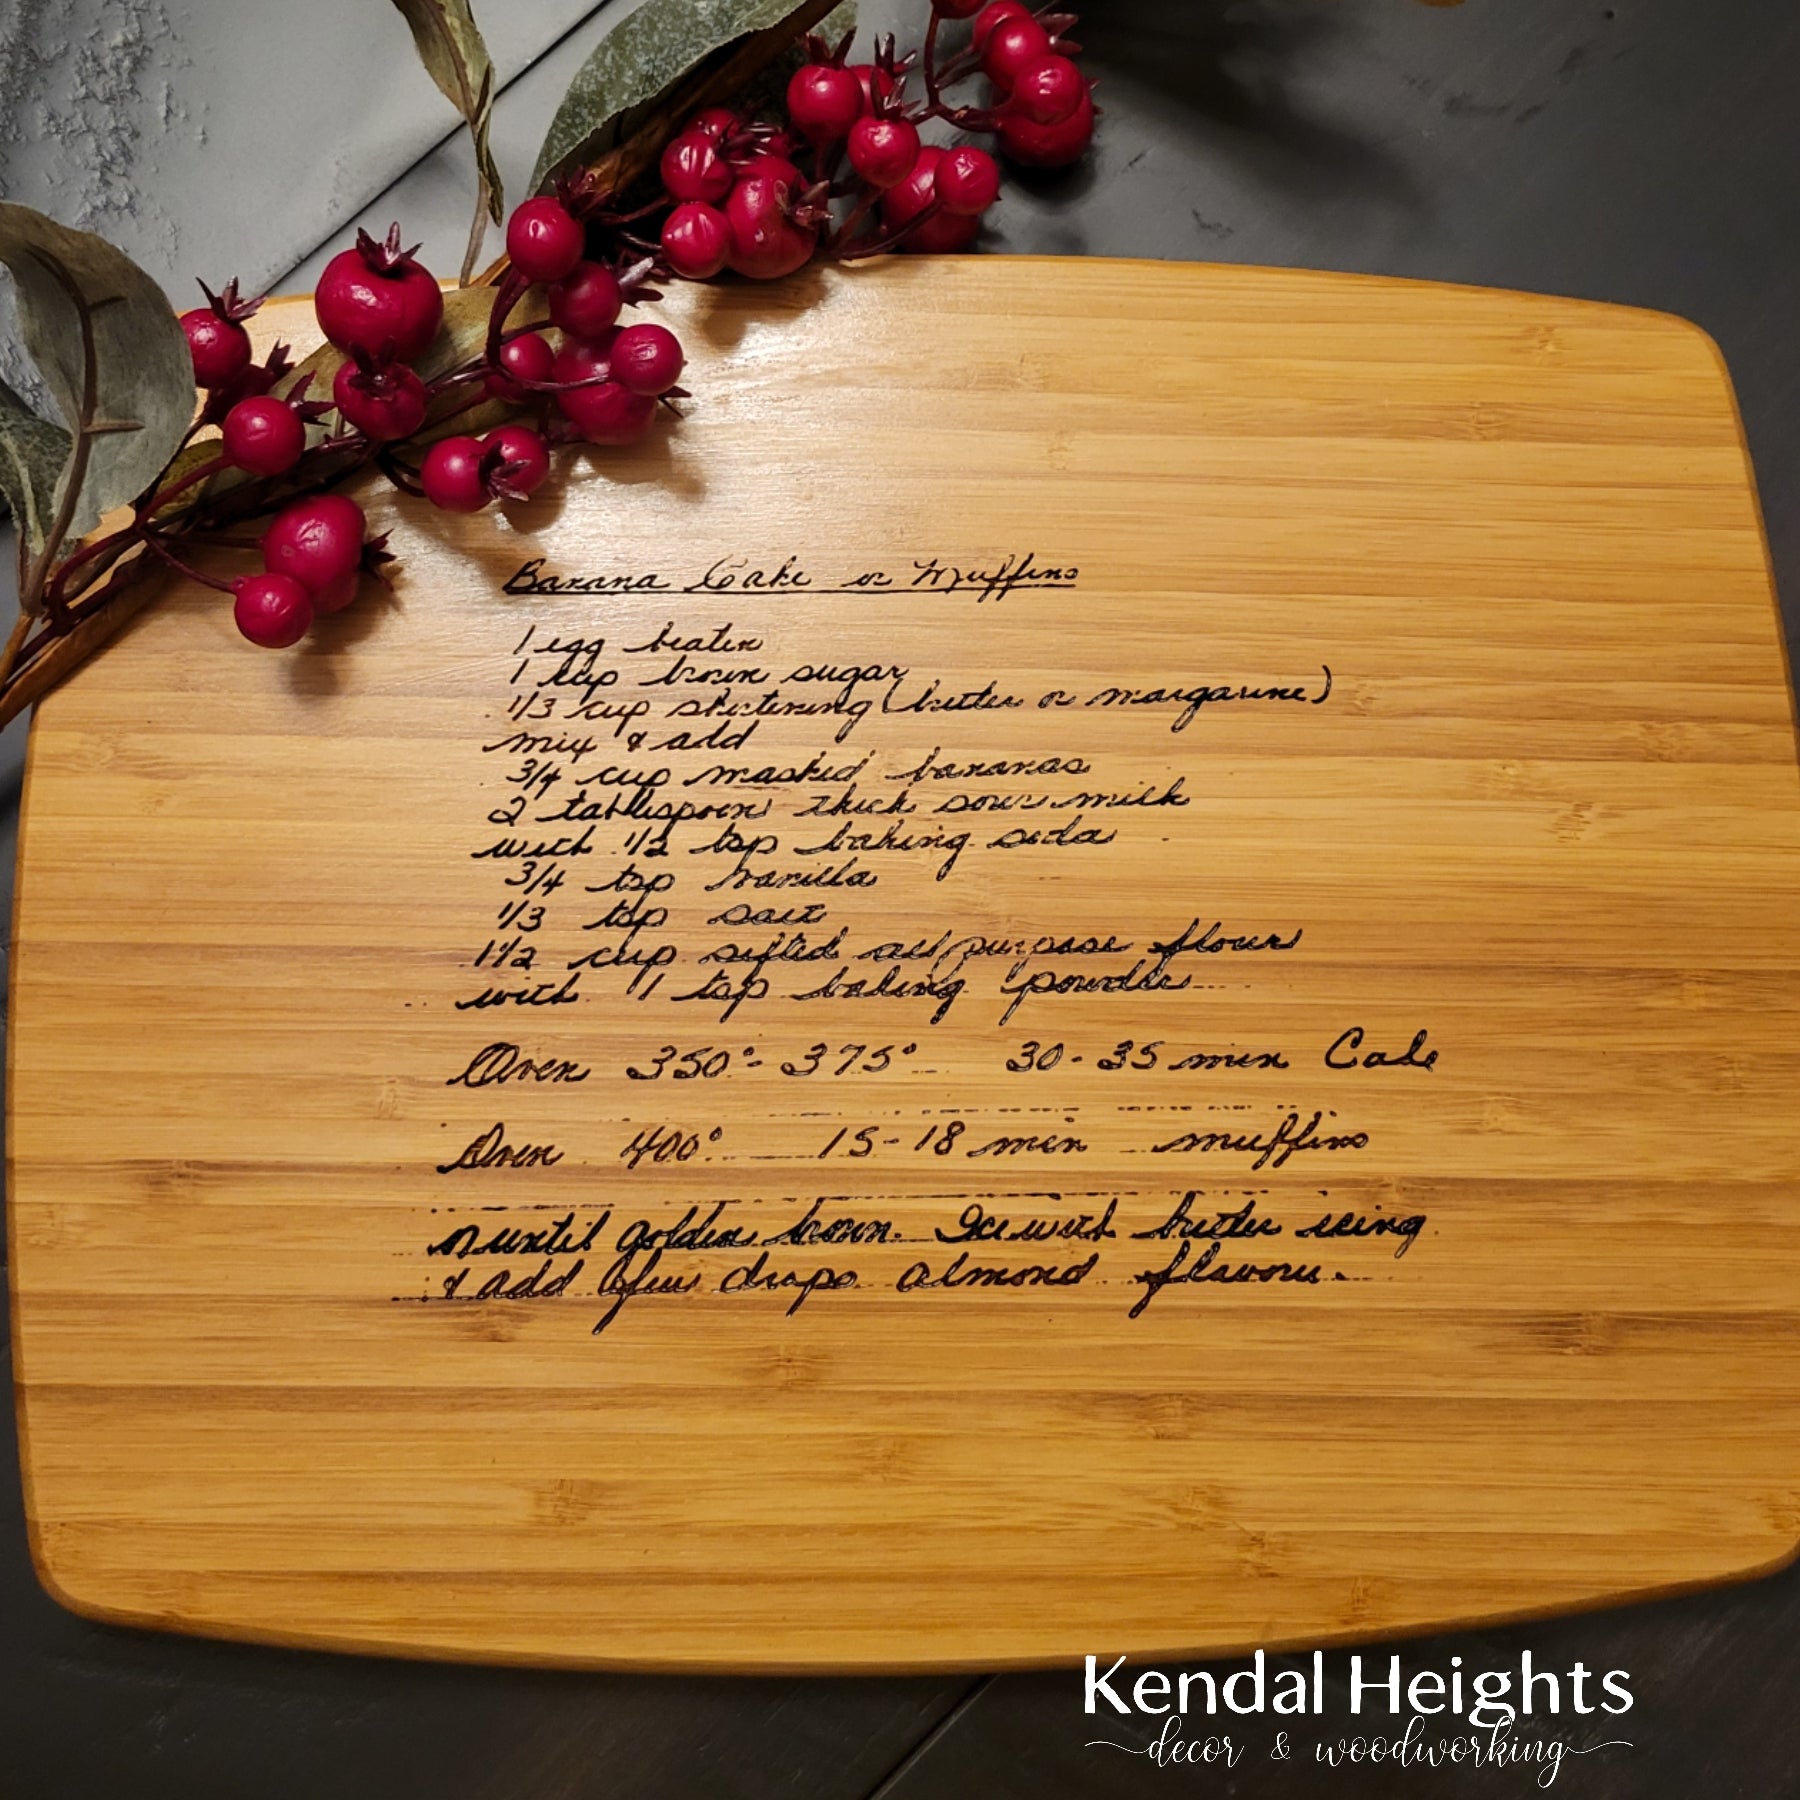 Banana Cake or Muffins
1 egg beaten
1 cup brown sugar
1/3 cup shortening (butter or margarine)
mix & add
3/4 cup mashed bananas
2 tablespoon thick sour milk
with 1/2 tsp baking soda
3/4 tsp vanilla
1/3 tsp salt
1 1/2 cup sifted all purpose flour
with 1 tsp baking powder
Oven 350°- 375° 30-35 min Cake
Oven 400° 15-18 min muffins
or until golden brown. Ice with butter icing
& add a few drops almond flavour.
Kendal Heights
decor & woodworking